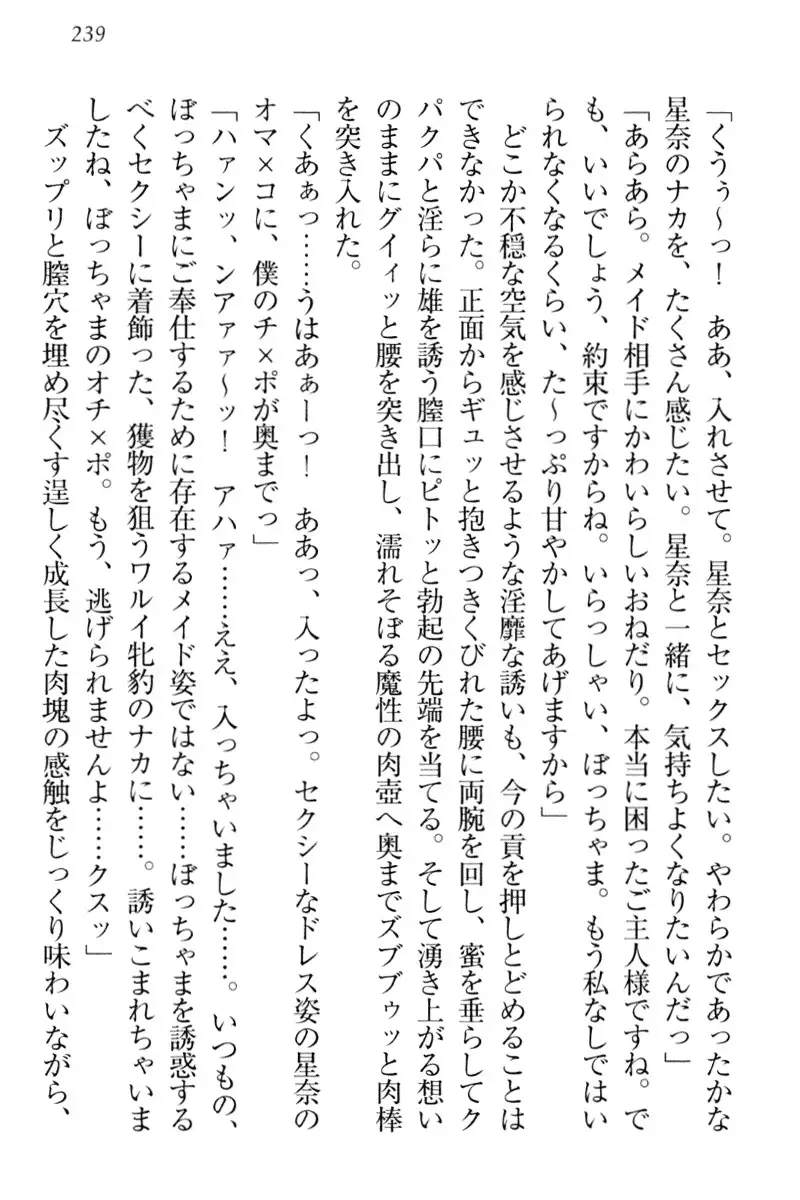 239
「くうぅ～っ！　ああ、入れさせて。星奈とセックスしたい。やわらかであったかな
星奈のナカを、たくさん感じたい。星奈と一緒に、気持ちよくなりたいんだっ」
「あらあら。メイド相手にかわいらしいおねだり。本当に困ったご主人様ですね。で
も、いいでしょう、約束ですからね。いらっしゃい、ぼっちゃま。もう私なしではい
られなくなるくらい、た～っぷり甘やかしてあげますから」
　どこか不穏な空気を感じさせるような淫靡な誘いも、今の貢を押しとどめることは
できなかった。正面からギュッと抱きつきくびれた腰に両腕を回し、蜜を垂らしてク
パクパと淫らに雄を誘う膣口にピトッと勃起の先端を当てる。そして湧き上がる想い
のままにグイィッと腰を突き出し、濡れそぼる魔性の肉壺へ奥までズブブゥッと肉棒
を突き入れた。
「くあぁっ……うはあぁーっ！　ああっ、入ったよっ。セクシーなドレス姿の星奈の
オマ×コに、僕のチ×ポが奥までっ」
「ハァンッ、ンアァァ～ッ！　アハァ……ええ、入っちゃいました……。いつもの、
ぼっちゃまにご奉仕するために存在するメイド姿ではない……ぼっちゃまを誘惑する
べくセクシーに着飾った、獲物を狙うワルイ牝豹のナカに……。誘いこまれちゃいま
したね、ぼっちゃまのオチ×ポ。もう、逃げられませんよ……クスッ」
　ズップリと膣穴を埋め尽くす逞しく成長した肉塊の感触をじっくり味わいながら、